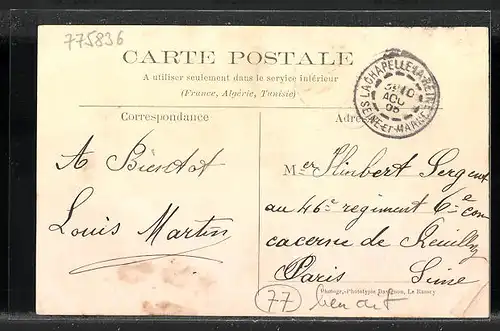 775836
CARTE POSTALE
A utiliser seulement dans le service intérieur
(France, Algérie, Tunisie)
LA CHAPELLE-LA-REINE
AOU
SEINE-ET-MARNE
Correspondance
A Bientot
Louis Martin
Mer Humbert Sergent
au 46e regiment 6e com
caserne de Reuilly
Paris Seine
Photogr.-Phototypie
77